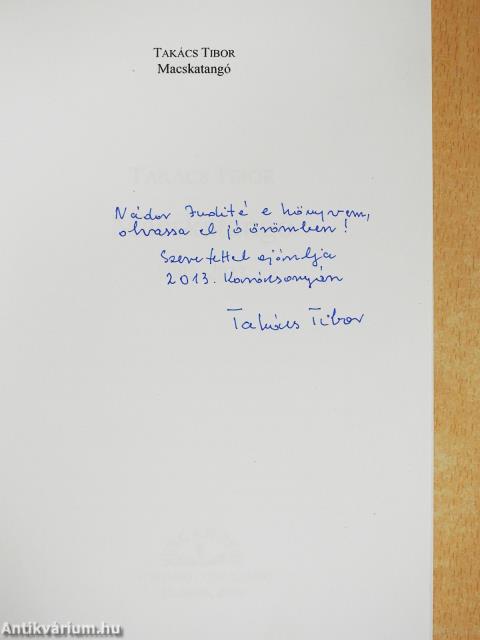 TAKÁCS TIBOR
Macskatangó
Nádor Judité e könyvem,
olvassa el jó örömben!
Szeretettel ajánlja
2013. Karácsonyán
Takács Tibor
Antikvárium.hu